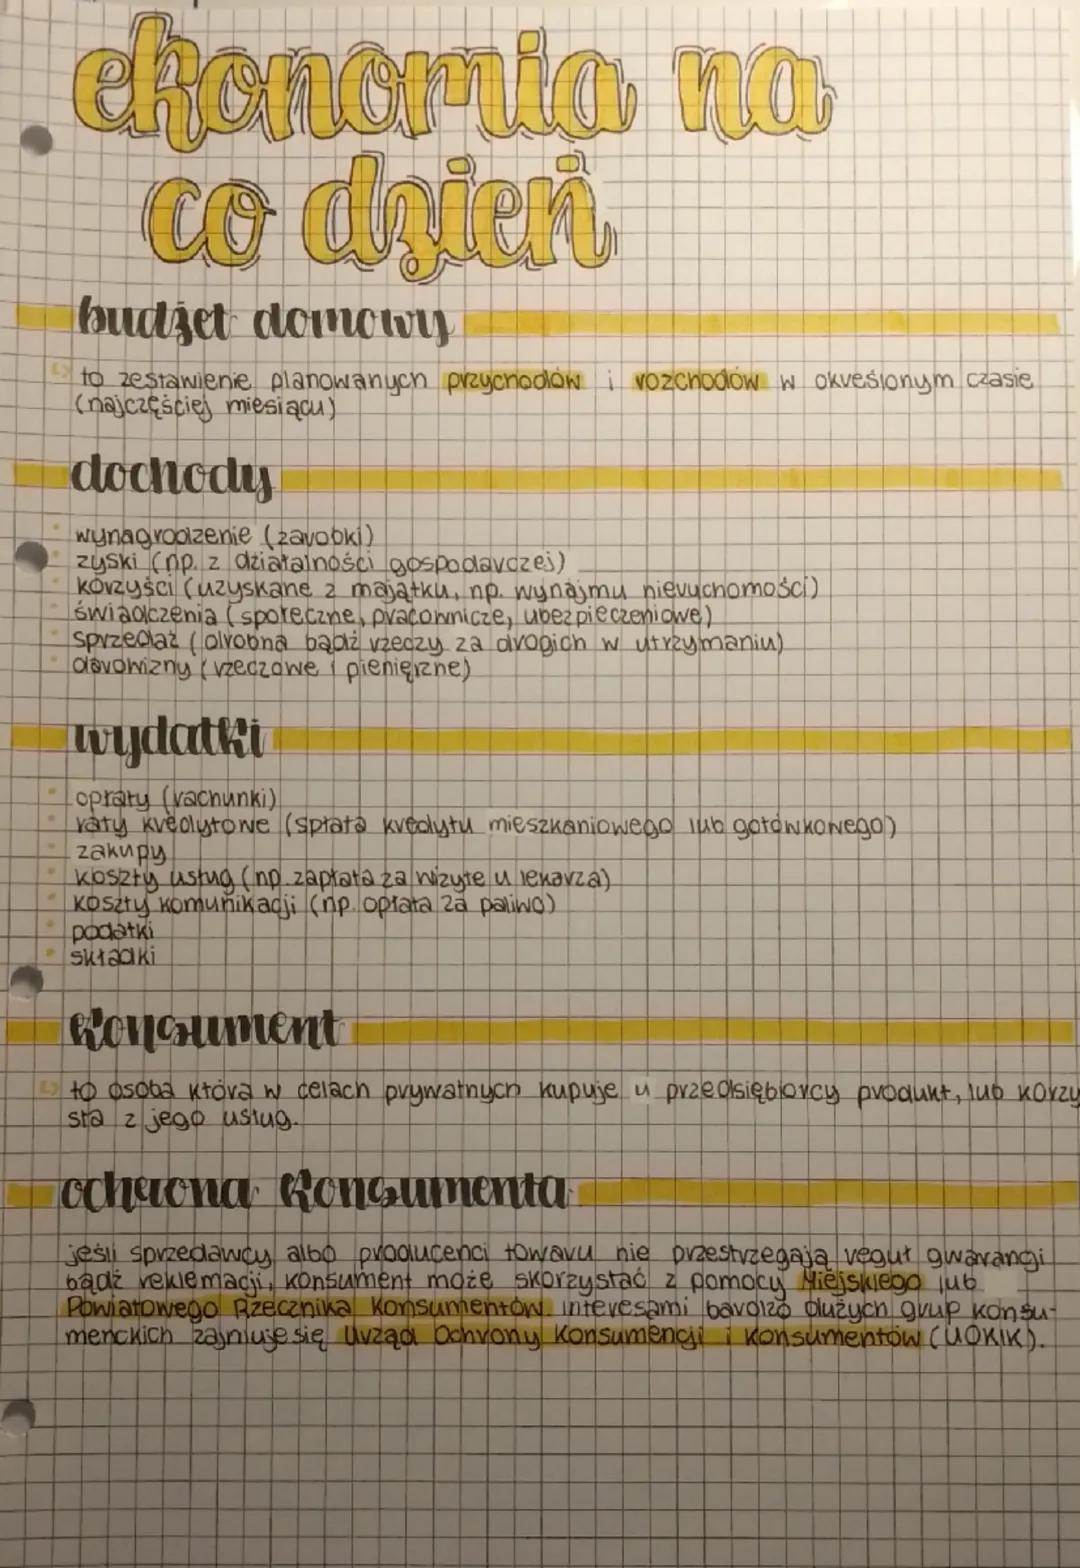 ekonomia na
co dzień
budżet domowy
to zestawienie planowanych przychodów i rozchodów w określonym czasie
(najczęściej miesiącu)
dochody
wynagrodzenie (zarobki)
zyski (np. z działalności gospodarczej)
korzyści (uzyskane z majątku, np. wynajmu nieruchomości)
świadczenia (społeczne, pracownicze, ubezpieczeniowe)
sprzedaż (drobna bądź rzeczy za drogich w utrzymaniu)
darowizny (rzeczowe i pieniężne)
wydatki
opłaty (rachunki)
raty kredytowe (spłata kredytu mieszkaniowego lub gotówkowego)
zakupy
koszty usług (np. zapłata za wizytę u lekarza)
koszty komunikacji (np. opłata za paliwo)
podatki
składki
konsument
to osoba która w celach prywatnych kupuje u przedsiębiorcy produkt, lub korzy
sta z jego usług.
ochrona konsumenta
jeśli sprzedawcy albo producenci towaru nie przestrzegają reguł gwarangi
bądź reklemacji, konsument może skorzystać z pomocy Miejskiego lub
Powiatowego Rzecznika Konsumentów. interesami bardzo dużych grup konsu-
menckich zajmuje się Urząd Ochrony Konsumencji i konsumentów (UOKIK).